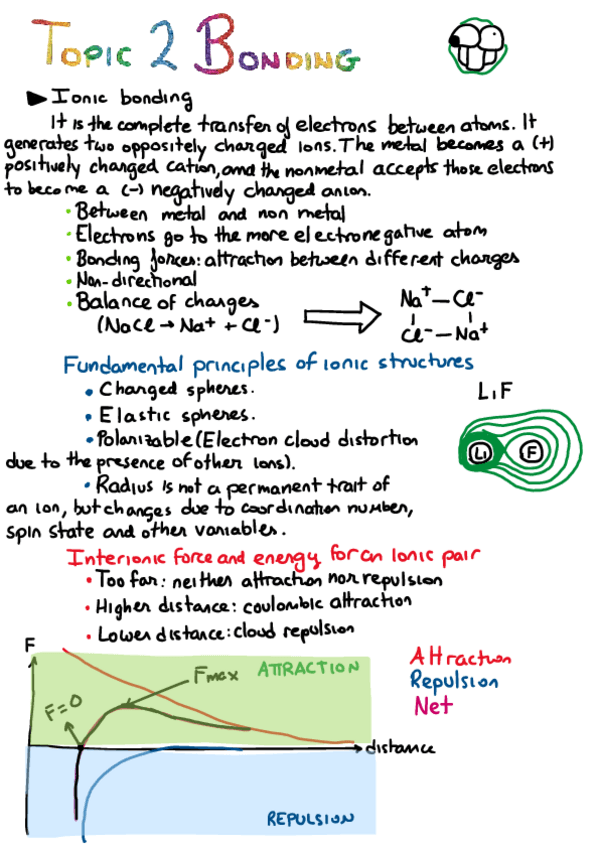 Topic 2 Bonding
Ionic bonding
It is the complete transfer of electrons between atoms. It
generates two oppositely charged ions. The metal becomes a (+)
positively changed cation, and the nonmetal accepts those electrons
to become a (-) negatively changed anion.
• Between metal and non metal
• Electrons go to the more electronegative atom
• Bonding forces: attraction between different charges
• Non-directional
• Balance of changes
(NaCl → Na+ + Cl-)
Na+ — Cl-
Cl- — Na+
Fundamental principles of ionic structures
• Changed spheres.
• Elastic spheres.
• Polarizable (Electron cloud distortion
due to the presence of other ions).
• Radius is not a permanent trait of
an ion, but changes due to coordination number,
spin state and other variables.
LiF
Li F
Interionic force and energy for an ionic pair
• Too far: neither attraction nor repulsion
• Higher distance: coulombic attraction
• Lower distance: cloud repulsion
F
ATTRACTION
Fmax
F=0
distance
REPULSION
Attraction
Repulsion
Net